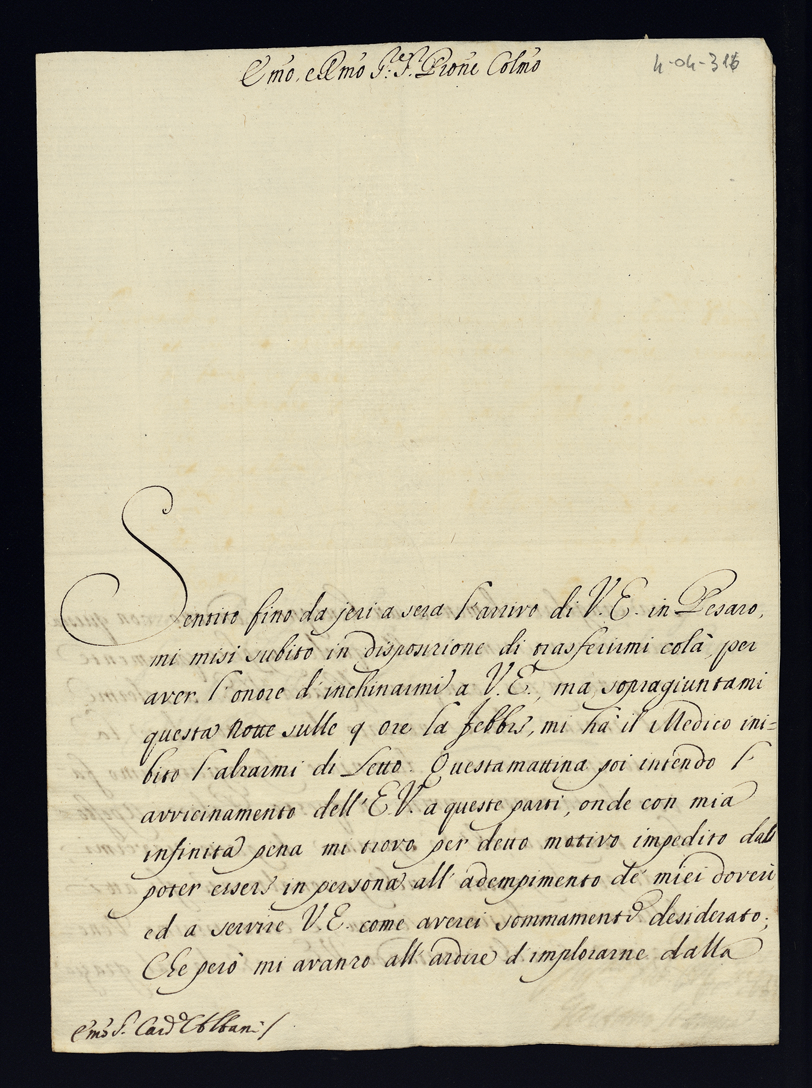 Emo, e Rmo Sre Sr Prone Colmo
4-04-316
Sentito fino da jeri a sera l'arrivo di V. E. in Pesaro,
mi misi subito in disposizione di trasferirmi colà, per
aver l'onore d'inchinarmi a V. E., ma sopragiuntami
questa notte sulle 9 ore la febbre, mi hà il Medico ini=
bito l'alzarmi di Letto. Questa mattina poi intendo l'
avvicinamento dell'E. V. a queste parti, onde con mia
infinita pena mi trovo per detto motivo impedito dall
poter essere in persona all'adempimento de miei doveri
ed a servire V. E. come averei sommamente desiderato;
Che però mi avanzo all'ardire d'implorarne dalla
Emo S. Card. Albani /